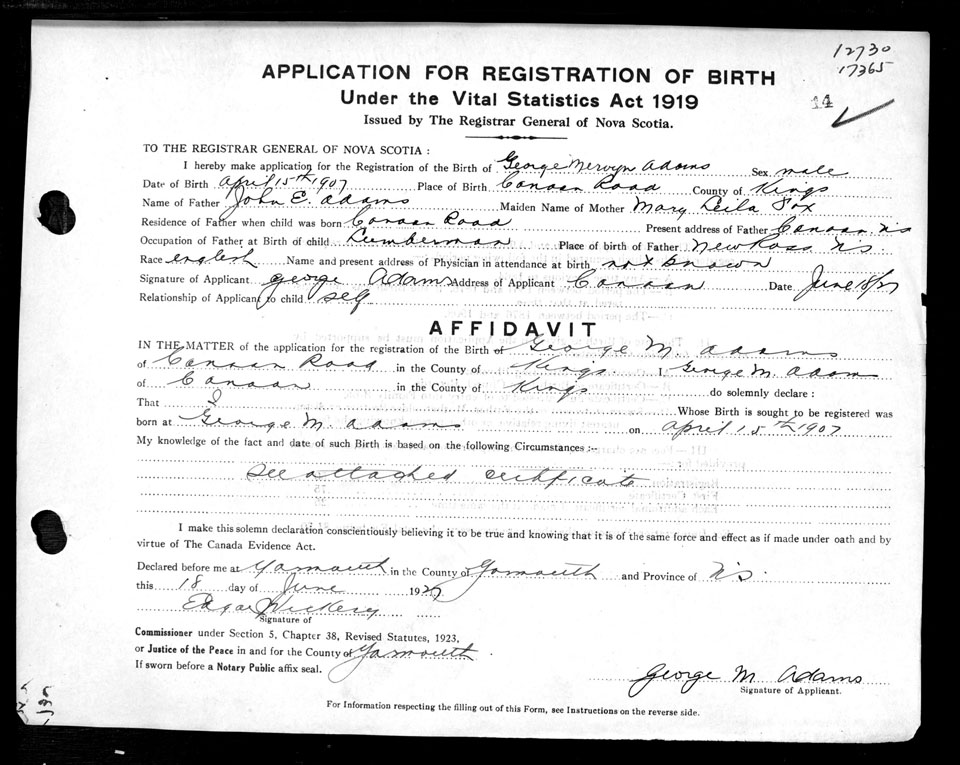 12730
17365
14
APPLICATION FOR REGISTRATION OF BIRTH
Under the Vital Statistics Act 1919
Issued by The Registrar General of Nova Scotia.
TO THE REGISTRAR GENERAL OF NOVA SCOTIA :
I hereby make application for the Registration of the Birth of George Mervyn Adams Sex male
Date of Birth April 15th 1907 Place of Birth Canaan Road County of Kings
Name of Father John E. Adams Maiden Name of Mother Mary Leila Fox
Residence of Father when child was born Canaan Road Present address of Father Canaan, NS
Occupation of Father at Birth of child Lumberman Place of birth of Father New Ross NS
Race english Name and present address of Physician in attendance at birth not known
Signature of Applicant george Adams Address of Applicant Canaan Date June 18/27
Relationship of Applicant to child self
AFFIDAVIT
IN THE MATTER of the application for the registration of the Birth of George M. Adams
of Canaan Road in the County of Kings I George M. Adams
of Canaan in the County of Kings do solemnly declare :
That I Whose Birth is sought to be registered was
born at George M. Adams on April 15th 1907
My knowledge of the fact and date of such Birth is based on the following Circumstances :-
See attached certificate
I make this solemn declaration conscientiously believing it to be true and knowing that it is of the same force and effect as if made under oath and by
virtue of The Canada Evidence Act.
Declared before me at Yarmouth in the County of Yarmouth and Province of NS.
this 18 day of June 1927
Edgar Vickery
Signature of
Commissioner under Section 5, Chapter 38, Revised Statutes, 1923,
or Justice of the Peace in and for the County of Yarmouth
If sworn before a Notary Public affix seal.
George M Adams
Signature of Applicant.
For Information respecting the filling out of this Form, see Instructions on the reverse side.